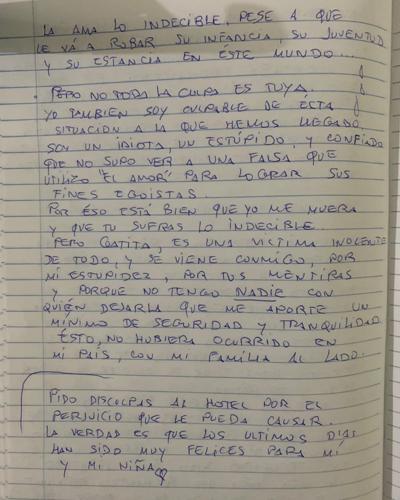 LA AMA LO INDECIBLE, PESE A QUE
LE VÁ A ROBAR SU INFANCIA, SU JUVENTUD
Y SU ESTANCIA EN ÉSTE MUNDO...
PERO NO TODA LA CULPA ES TUYA.
YO TAMBIEN SOY CULPABLE DE ÉSTA
SITUACIÓN A LA QUE HEMOS LLEGADO.
SOY UN IDIOTA, UN ESTÚPIDO, Y CONFIADO
QUE NO SUPO VER A UNA FALSA QUE
UTILIZO "EL AMOR" PARA LOGRAR SUS
FINES EGOISTAS.
POR ÉSO ESTÁ BIEN QUE YO ME MUERA
Y QUE TU SUFRAS LO INDECIBLE.
PERO ES UNA VICTIMA INOCENTE
DE TODO, Y SE VIENE CONMIGO, POR
MI ESTUPIDEZ, POR TUS MENTIRAS
Y PORQUE NO TENGO NADIE CON
QUIÉN DEJARLA QUE ME APORTE UN
MÍNIMO DE SEGURIDAD Y TRANQUILIDAD.
ÉSTO, NO HUBIERA OCURRIDO EN
MI PAÍS, CON MI FAMILIA AL LADO.
PIDO DISCULPAS AL HOTEL POR EL
PERJUICIO QUE LE PUEDA CAUSAR.
LA VERDAD ES QUE LOS ULTIMOS DÍAS
HAN SIDO MUY FELICES PARA MÍ
Y MI NIÑA